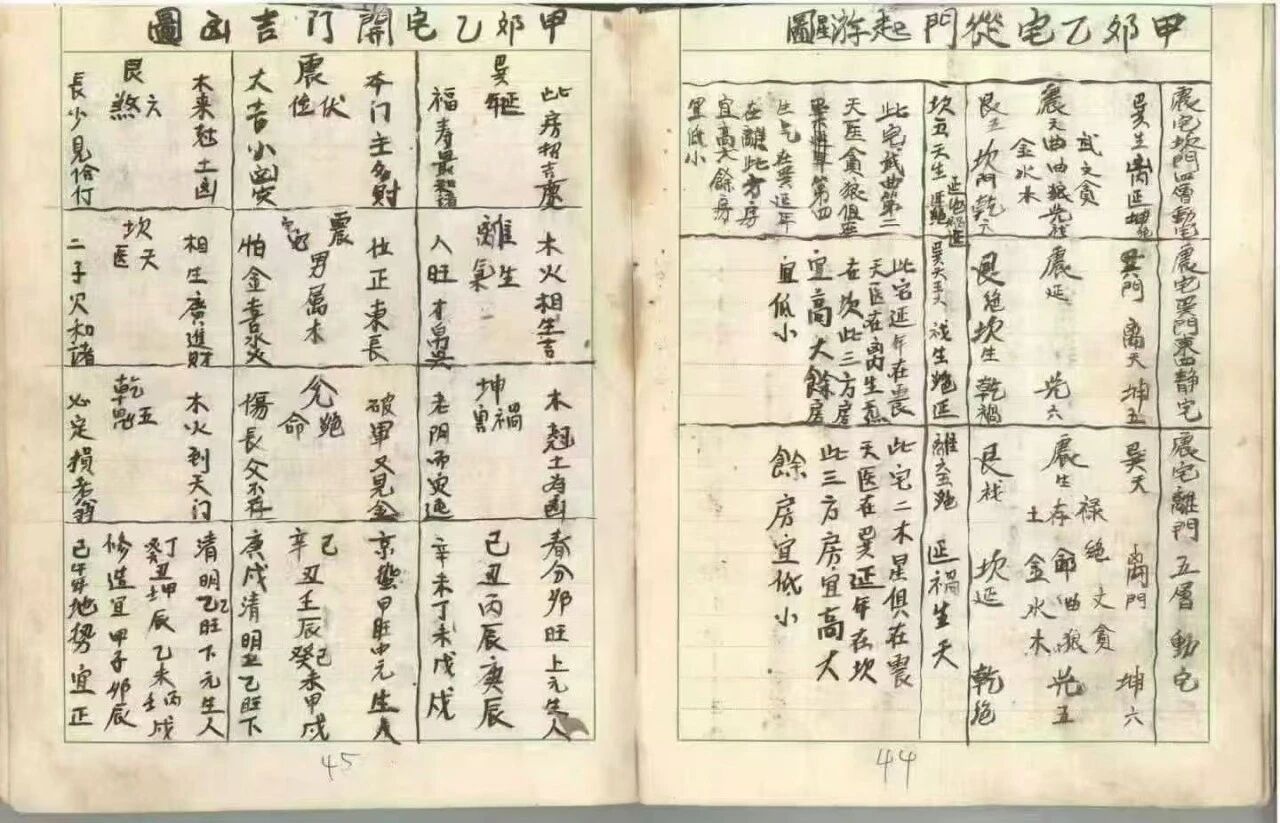 甲夘乙宅從門起游星圖
震宅坎門四層動宅
巽生 離延 坤絕
武文貪
震天曲曲狼
金水木
艮五 坎門 乾六
坎五天生延絕禍
此宅武曲第二
天医貪狼俱
第四
生气在巽延年
在離此方房
宜高大餘房
宜低小
震宅巽門東四静宅
巽門 离天 坤五
震延 兌六
艮絕 坎生 乾禍
巽天五六禍生絕延
此宅延年在震
天医在离生炁
在坎此三方房
宜高大餘房
宜低小
震宅離門五層動宅
巽天 离門 坤六
禄絕文貪
震生存郎曲狼兌五
土金水木
艮 坎延 乾絕
離六五絕延禍生天
此宅二木星俱在震
天医在巽延年在坎
此三方房宜高大
餘房宜低小
44
甲夘乙宅開门吉凶圖
此房招吉慶
巽延年
福寿最
本门主多財
震伏位
大吉小凶灾
木来尅土凶
艮六煞
長少見
木火相生吉
離生氣
人旺才
位正東長
震宅男属木
怕金喜水火
相生廣進財
坎天医
二子欠和諧
木尅土为凶
坤禍害
老阴
破軍又見金
兌絕命
傷長父不存
木火到天门
乾五鬼
必定損老翁
春分夘旺上元生人
己丑丙辰庚辰
辛未丁未戊戌
京蟄甲旺中元生人
己丑壬辰癸未甲戌
辛巳
庚戌清明乙旺下
清明乙旺下元生人
丁丑甲辰乙未丙戌
癸
修造宜甲子夘辰
己午年地势宜正
45